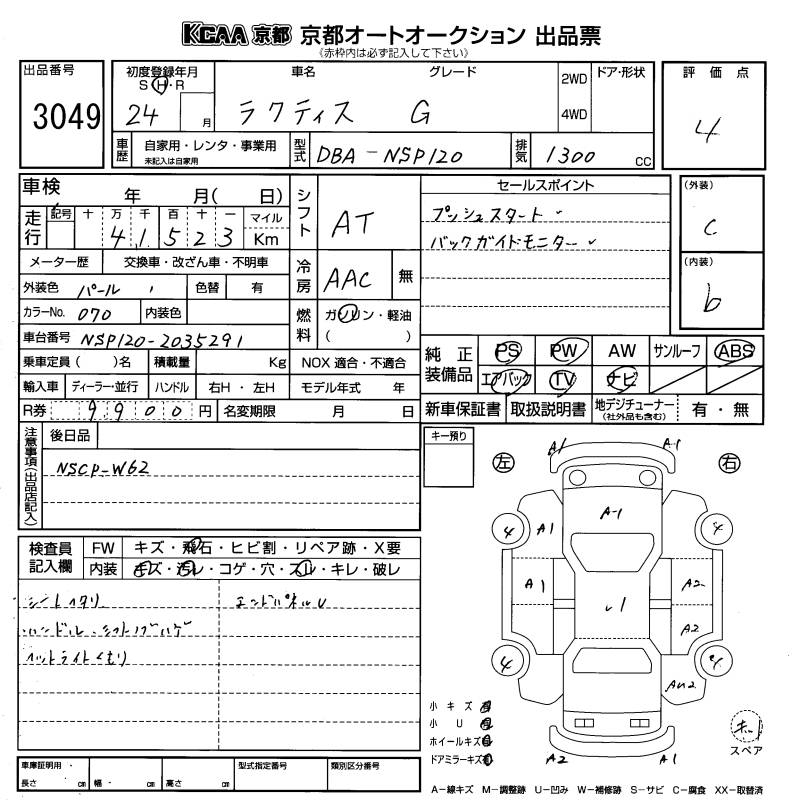 KCAA 京都 京都オートオークション 出品票
《赤枠内は必ず記入して下さい》
出品番号
3049
初度登録年月
S・H・R
24 月
車名 グレード
ラクティス G
2WD
4WD
ドア・形状
評価点
4
車歴
自家用・レンタ・事業用
未記入は自家用
型式
DBA-NSP120
排気
1300 CC
車検 年 月( 日)
走行
記号 十 万 千 百 十 一 マイル
4 1 5 2 3 Km
シフト
AT
セールスポイント
プッシュスタート
バックガイドモニター
(外装)
C
(内装)
b
メーター歴 交換車・改ざん車・不明車
冷房
AAC 無
外装色 パール 色替 有
カラーNo. 070 内装色
燃料
ガソリン・軽油
( )
車台番号 NSP120-2035291
乗車定員( )名 積載量 Kg NOX 適合・不適合
輸入車 ディーラー・並行 ハンドル 右H・左H モデル年式 年
R券 9900 円 名変期限 月 日
純正装備品
PS PW AW サンルーフ ABS
エアバック TV ナビ
新車保証書 取扱説明書 地デジチューナー 有・無
(社外品も含む)
注意事項(出品店記入)
後日品
NSCP-W62
キー預り
左
右
検査員記入欄
FW キズ・飛石・ヒビ割・リペア跡・X要
内装 キズ・汚レ・コゲ・穴・スレ・キレ・破レ
シートヘタリ
エンドパネルU
ハンドル・シフトノブハゲ
ヘットライトくもり
A1 A-1
A-1
4 A1 4
A1 A2
A2
4
AU2
小キズ
小U
ホイールキズ
ドアミラーキズ
A2 A1
スペア
車庫証明用
長さ cm 幅 cm 高さ cm
型式指定番号
類別区分番号
A-線キズ M-調整跡 U-凹み W-補修跡 S-サビ C-腐食 XX-取替済